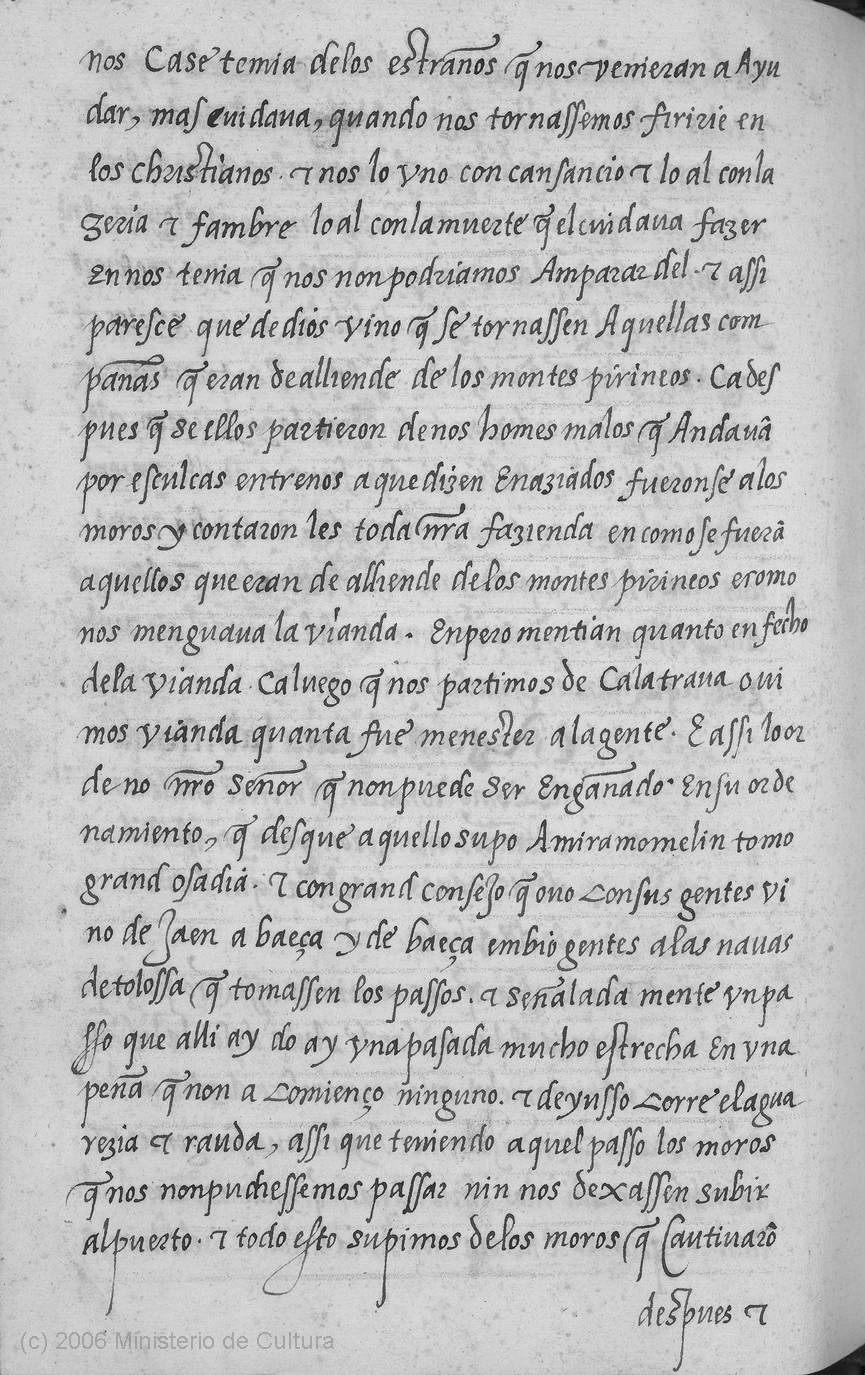 nos Case temia delos estranos q̃ nos venieran a Ayu
dar, mas cuidaua, quando nos tornassemos firirie en
los christianos. ⁊ nos lo vno con cansancio ⁊ lo al con la
zeria ⁊ fambre lo al con la muerte q̃ el cuidaua fazer
En nos tenia q̃ nos non podriamos Amparar del. ⁊ assi
paresce que de dios vino q̃ se tornassen Aquellas com
pañas q̃ eran de alliende de los montes pirineos. Ca des
pues q̃ se ellos partieron de nos homes malos q̃ Andauã
por esculcas entre nos a que dizen Enaziados fueronse a los
moros y contaron les toda nr̃a fazienda en como se fuerã
aquellos que eran de alliende de los montes pirineos e como
nos menguaua la vianda. Enpero mentian quanto en fecho
dela vianda. Ca luego q̃ nos partimos de Calatraua oui
mos vianda quanta fue menester a la gente. E assi lo or
de no nr̃o Señor q̃ non puede ser Engañado. En su orde
namiento, q̃ desque aquello supo Amiramomelin tomo
grand osadia. ⁊ con grand consejo q̃ ouo con sus gentes vi
no de Jaen a baeça y de baeça embio gentes a las nauas
de tolossa q̃ tomassen los passos. ⁊ señalada mente vn pa
sso que alli ay do ay vna pasada mucho estrecha En vna
peña q̃ non a comienço ninguno. ⁊ de yusso corre el agua
rezia ⁊ rauda, assi que teniendo aquel passo los moros
q̃ nos non pudiessemos passar nin nos dexassen subir
al puerto. ⁊ todo esto supimos de los moros q̃ Cautiuarõ
despues ⁊
(c) 2006 Ministerio de Cultura